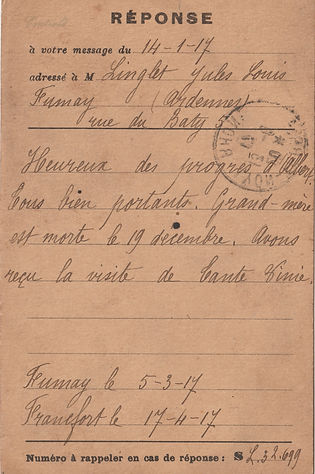 RÉPONSE
à votre message du 14-1-17
adressé à M Linglet Jules Louis
Fumay (Ardennes)
rue du Baty
Heureux des progrès d'Albert.
Tous bien portants. Grand-mère
est morte le 19 décembre. Avons
reçu la visite de Tante Vinie.
Fumay le 5-3-17
Francfort le 17-4-17
Numéro à rappeler en cas de réponse: S L.32.699